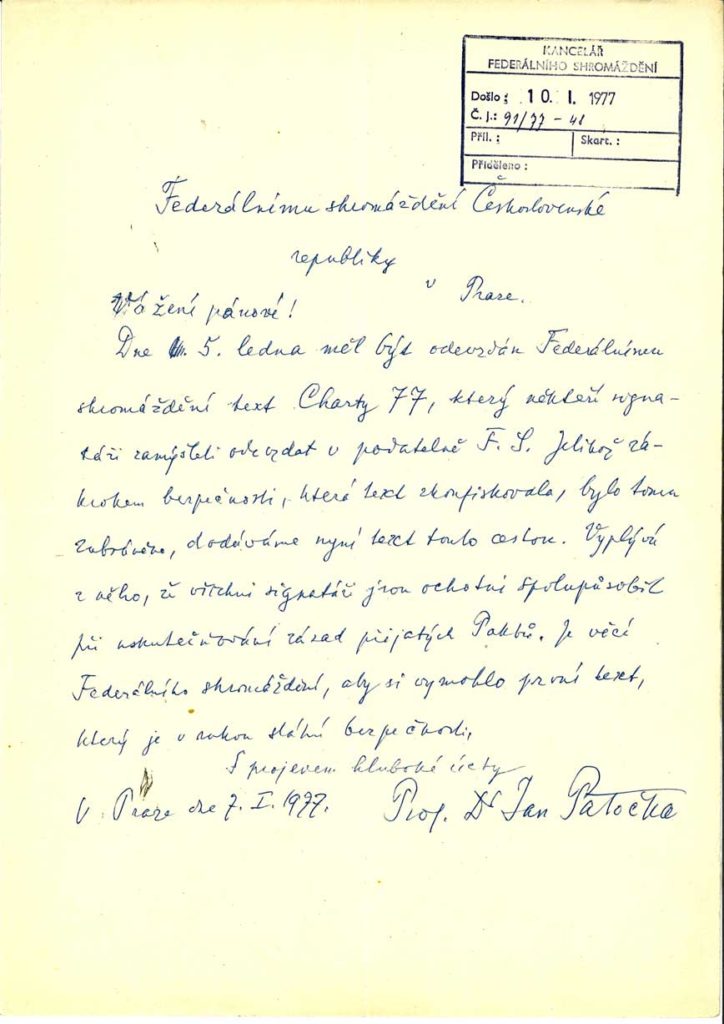 KANCELÁŘ
FEDERÁLNÍHO SHROMÁŽDĚNÍ
Došlo: 10. I. 1977
Č. j.: 91/77 - 41
Příl.: Skart.:
Přiděleno:
Federálnímu shromáždění Československé
republiky
v Praze.
Vážení pánové!
Dne 5. ledna měl být odevzdán Federálnímu
shromáždění text Charty 77, který někteří signa-
táři zamýšleli odevzdat v podatelně F. S. Jelikož zá-
krokem bezpečnosti, která text zkonfiskovala, bylo tomu
zabráněno, dodáváme nyní text touto cestou. Vyplývá
z něho, že všichni signatáři jsou ochotni spolupůsobit
při uskutečňování zásad přijatých Paktů. Je věcí
Federálního shromáždění, aby si vymohlo první text,
který je v rukou státní bezpečnosti.
S projevem hluboké úcty
V Praze dne 7. I. 1977. Prof. Dr Jan Patočka